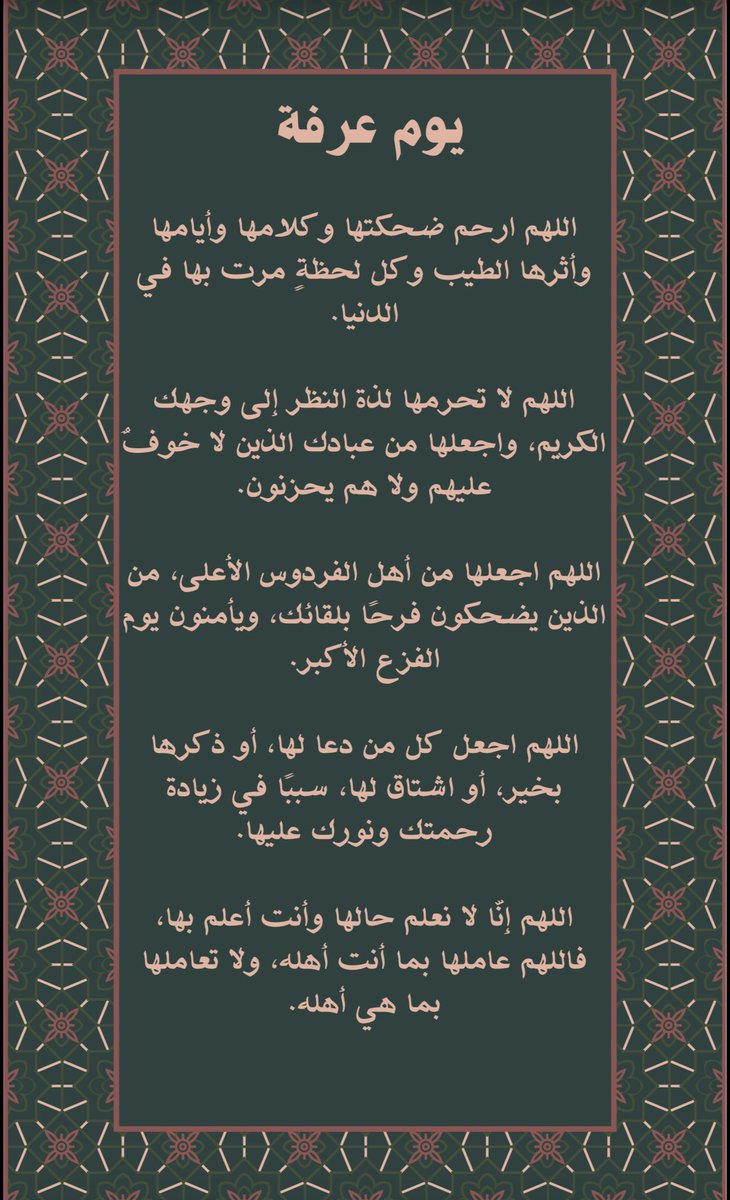 يوم عرفة
اللهم ارحم ضحكتها وكلامها وأيامها
وأثرها الطيب وكل لحظةٍ مرت بها في
الدنيا.
اللهم لا تحرمها لذة النظر إلى وجهك
الكريم، واجعلها من عبادك الذين لا خوفٌ
عليهم ولا هم يحزنون.
اللهم اجعلها من أهل الفردوس الأعلى، من
الذين يضحكون فرحًا بلقائك، ويأمنون يوم
الفزع الأكبر.
اللهم اجعل كل من دعا لها، أو ذكرها
بخير، أو اشتاق لها، سببًا في زيادة
رحمتك ونورك عليها.
اللهم إنّا لا نعلم حالها وأنت أعلم بها،
فاللهم عاملها بما أنت أهله، ولا تعاملها
بما هي أهله.